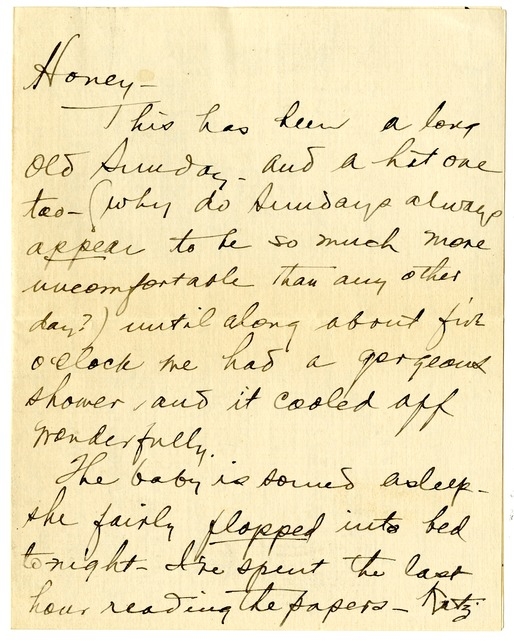 Honey—
This has been a long
old Sunday— and a hot one
too— (why do Sundays always
appear to be so much more
uncomfortable than any other
day?) until along about five
o'clock we had a gorgeous
shower, and it cooled off
wonderfully.
The baby is sound asleep—
she fairly flopped into bed
tonight— I've spent the last
hour reading the papers—